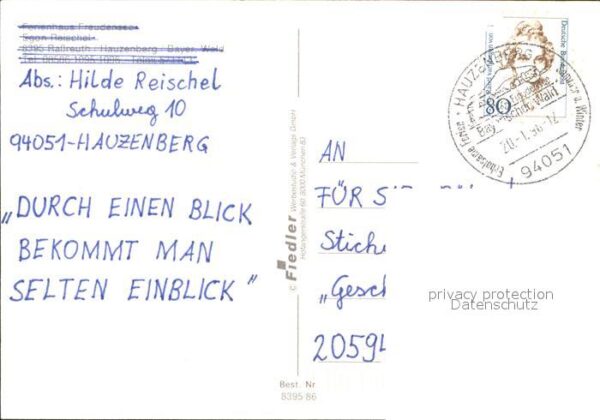 Ferienhaus Freudensee
Egon Reischel
8395 Raßreuth / Hauzenberg Bayer. Wald
Abs.: Hilde Reischel
Schulweg 10
94051-HAUZENBERG
„DURCH EINEN BLICK
BEKOMMT MAN
SELTEN EINBLICK"
© Fiedler Werbefoto & Verlags GmbH
8000 München
Best. Nr
8395 86
Deutsche Bundespost
80
HAUZENBERG
Bay. Wald
Erholsame
u. Winter
94051
AN
FÜR
Stiche
„Gesch
2059
privacy protection
Datenschutz